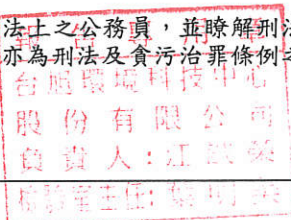 法上之公務員，並瞭解刑法
亦為刑法及貪污治罪條例之
報告專用章
台旭環境科技中心
股份有限公司
負責人：江誠榮
檢驗室主任：